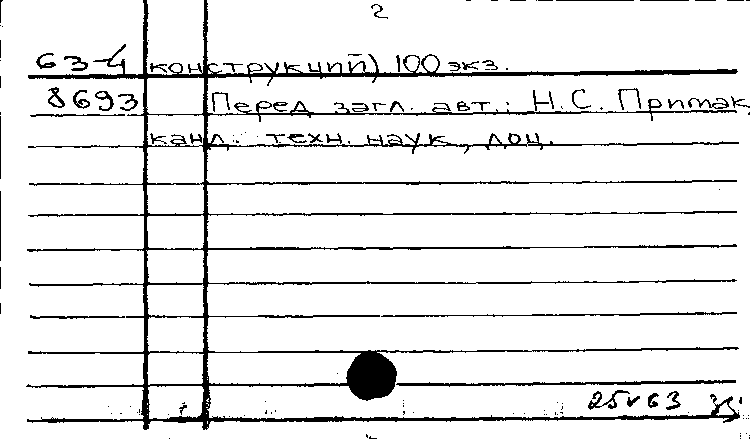 2
63-4 конструкций) 100 экз.
8693 Перед загл. авт.: Н.С. Примак,
канд. техн. наук, доц.
25 V 63